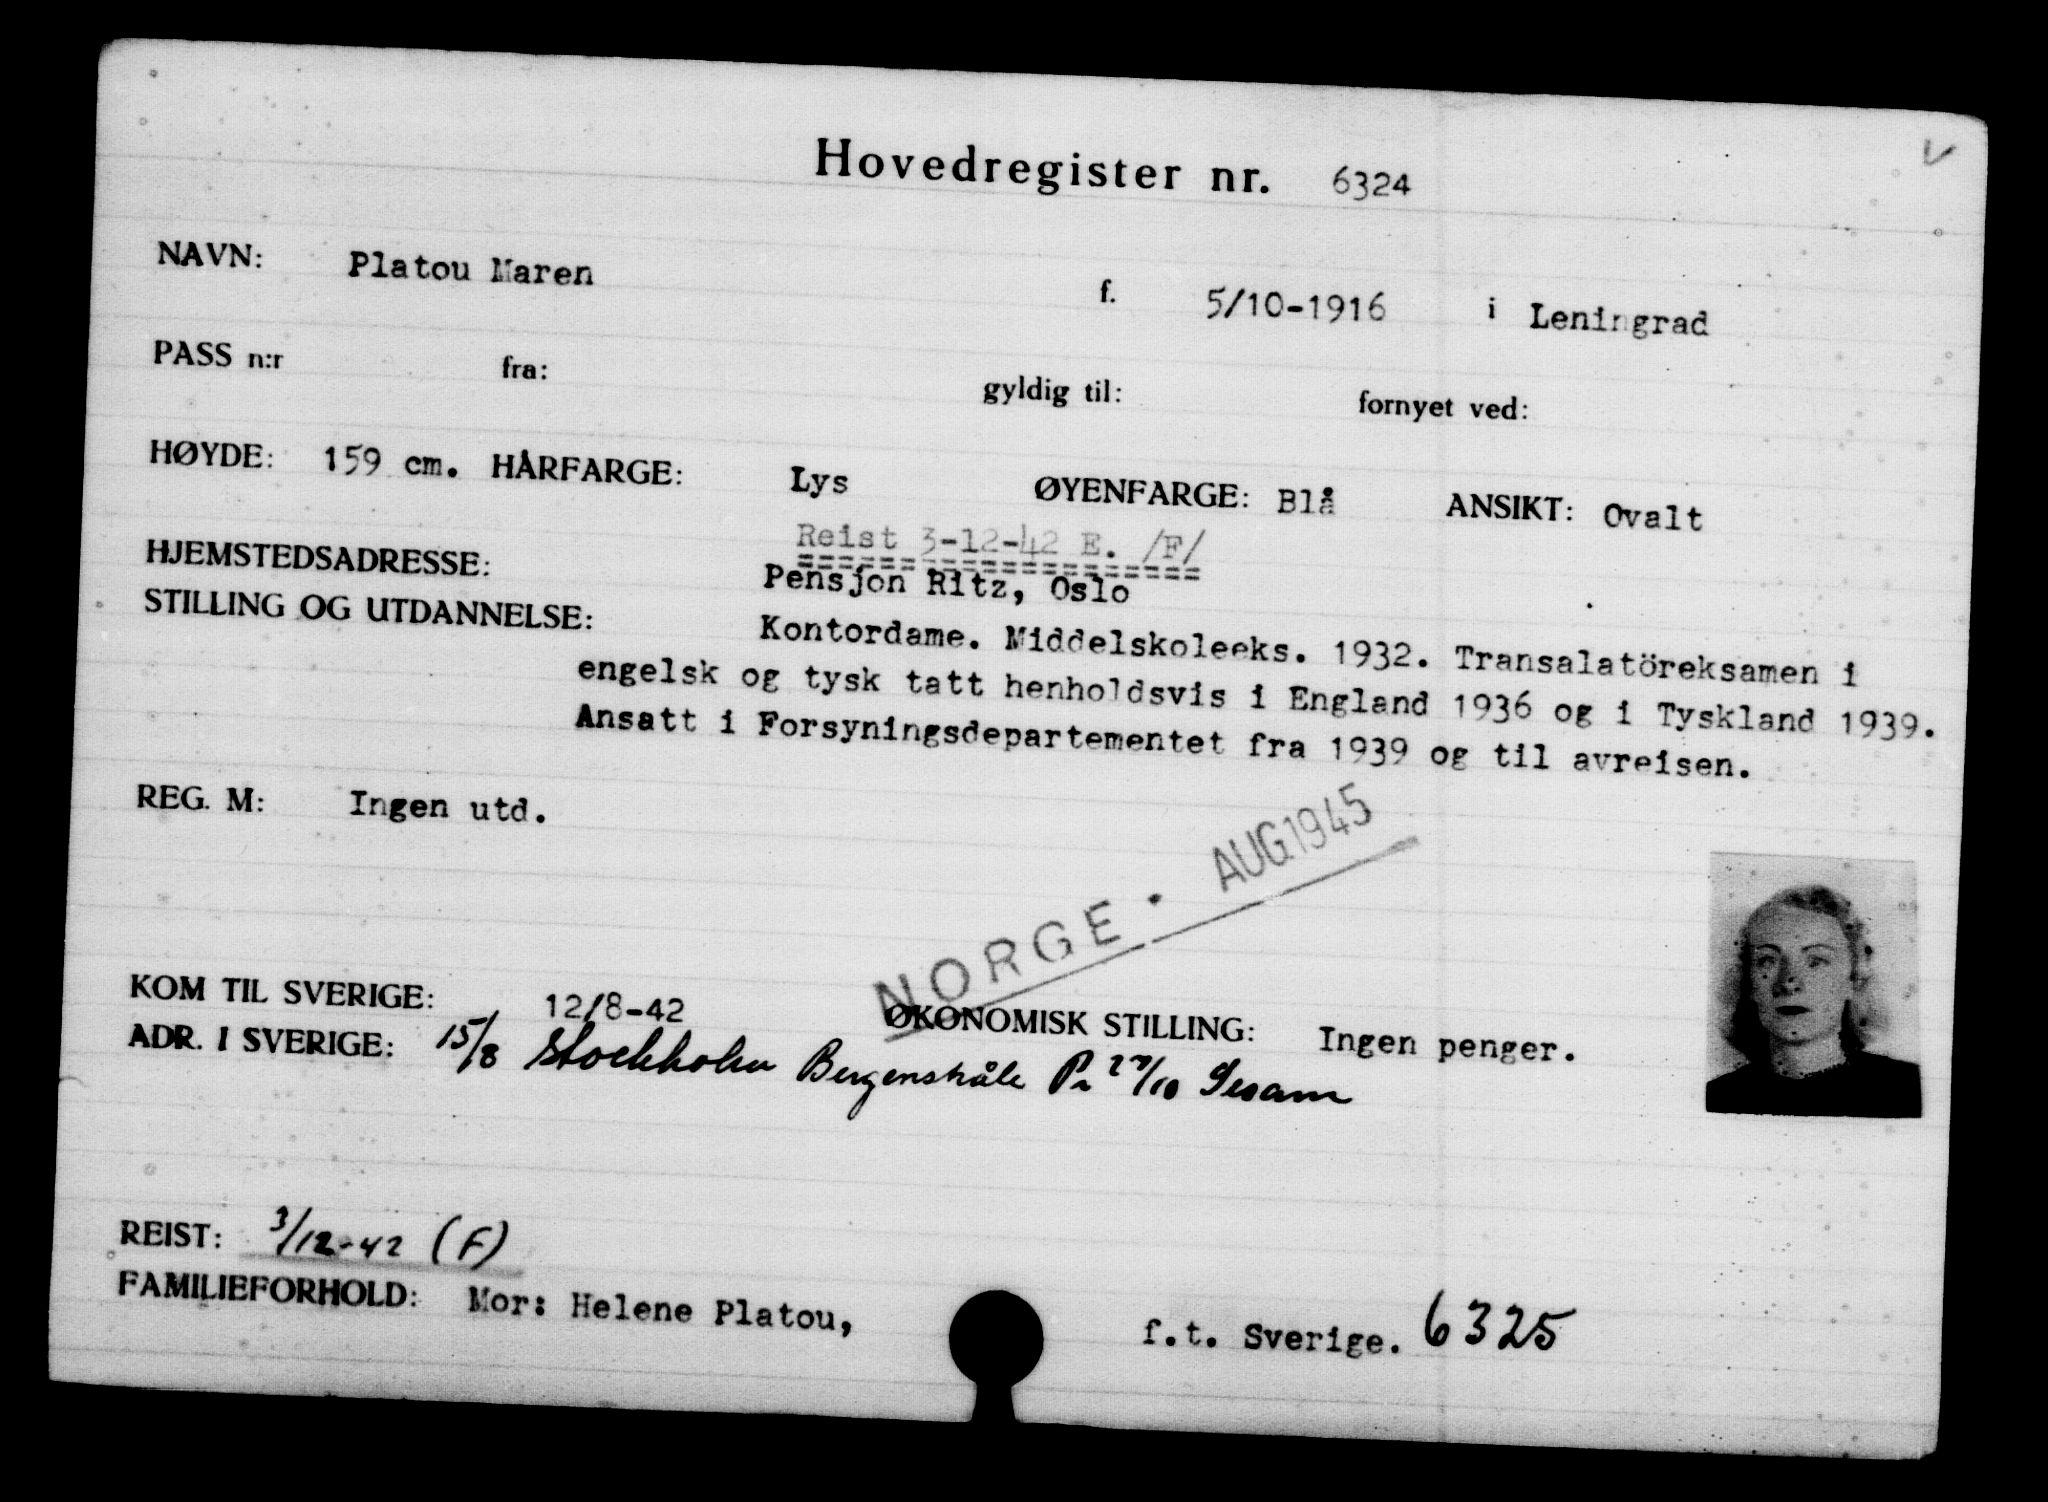 Hovedregister nr. 6324
NAVN: Platou Maren f. 5/10-1916 i Leningrad
PASS n:r fra: gyldig til: fornyet ved:
HØYDE: 159 cm. HÅRFARGE: Lys ØYENFARGE: Blå ANSIKT: Ovalt
Reist 3-12-42 E. /F/
HJEMSTEDSADRESSE: Pensjon Ritz, Oslo
STILLING OG UTDANNELSE: Kontordame. Middelskoleeks. 1932. Transalatöreksamen i
engelsk og tysk tatt henholdsvis i England 1936 og i Tyskland 1939.
Ansatt i Forsyningsdepartementet fra 1939 og til avreisen.
REG. M: Ingen utd.
NORGE · AUG 1945
KOM TIL SVERIGE: 12/8-42 ØKONOMISK STILLING: Ingen penger.
ADR. I SVERIGE: 15/8 Stockholm Bergenstråle
REIST: 3/12-42 (F)
FAMILIEFORHOLD: Mor: Helene Platou, f.t. Sverige. 6325